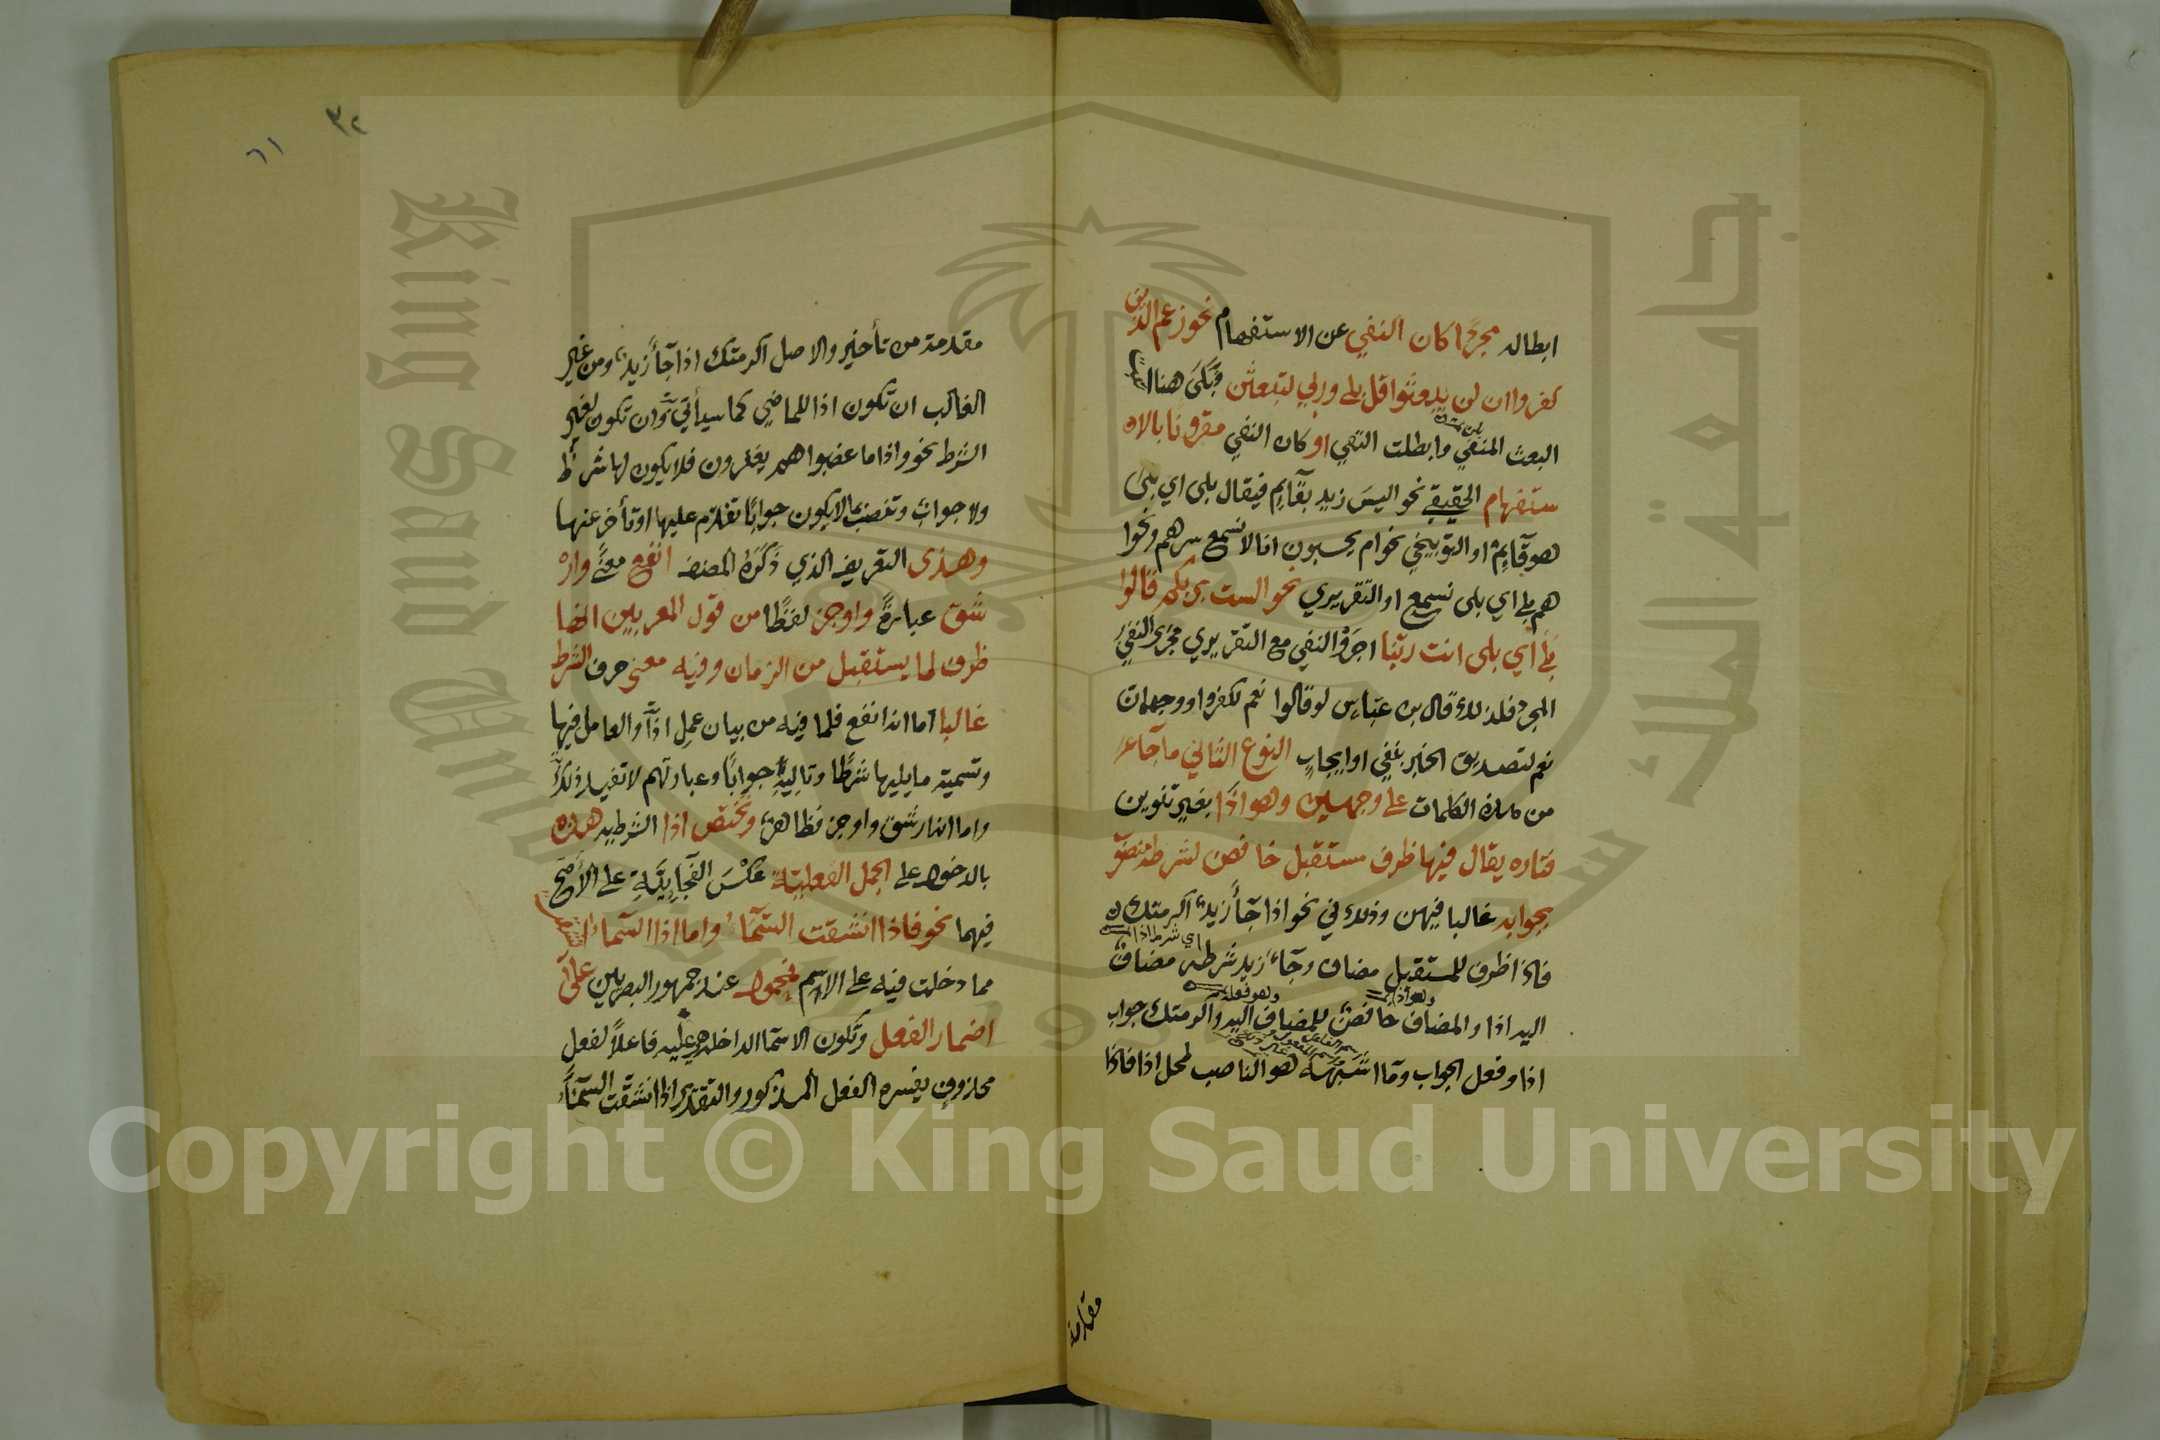 ابطاله مجردا كان النفي عن الاستفهام نحو زعم الذين
كفروا ان لن يبعثوا قل بلى وربي لتبعثن فبلى هنا
البعث المنفي وابطلت النفي او كان النفي مقرونا بالا
ستفهام الحقيقي نحو اليس زيد بقآيم فيقال بلى اي بلى
هو قآيم او التوبيخي نحو ام يحسبون انا لا نسمع سرهم ونجوا
هم بلى اي بلى نسمع او التقريري نحو الست بربكم قالوا
بلى أي بلى انت ربنا اجروا النفي مع التقريري مجرى النفي
المجرد فلذلك قال بن عباس لو قالوا نعم لكفروا ووجهه ان
نعم لتصديق الخبر بنفي او ايجاب النوع الثاني ما جاء
من هذه الكلمات على وجهين وهو اذا بغير تنوين
فتاره يقال فيها ظرف مستقبل خافض لشرطه منصو
بجوابه غالبا فيهن وذلك في نحو اذا جآء زيد اكرمتك
اي شرط اذا
فاذا ظرف للمستقبل مضاف وجآء زيد شرطه مضاف
وهو اذا
وهو فعله
اليه اذا والمضاف خافض للمضاف اليه واكرمتك جواب
اذا وفعل الجواب وما اشبهه هو الناصب لمحل اذا فاذا
مقدمة
٣٢
٦١
مقدمة من تأخير والاصل اكرمتك اذا جآء زيد ومن غير
الغالب ان تكون اذا للماضي كما سيأتي وان تكون لغير
الشرط نحو واذا ما غضبوا هم يغفرون فلا يكون لها شرط
ولا جواب وتنصب بما لا يكون جوابا تقدم عليها او تأخر عنها
وهذى التعريف الذي ذكره المصنف انفع معنى وار
شق عبارة واوجز لفظا من قول المعربين انها
ظرف لما يستقبل من الزمان وفيه معنى حرف الشرط
غالبا اما انه انفع فلما فيه من بيان عمل اذا والعامل فيها
وتسمية ما يليها شرطا وتاليه جوابا وعبارتهم لا تفيد ذلك
واما انه ارشق واوجز فظاهر وتختص اذا الشرطيه هذه
بالدخول على الجمل الفعلية عكس الفجايية على الأصح
فيهما نحو فاذا انشقت السمآء واما اذا السماء انشقت
مما دخلت فيه على الاسم فمحمول عند جمهور البصريين على
اضمار الفعل وتكون الاسما الداخله هي عليه فاعلا لفعل
محذوف يفسره الفعل المذكور والتقدير اذا انشقت السمآء